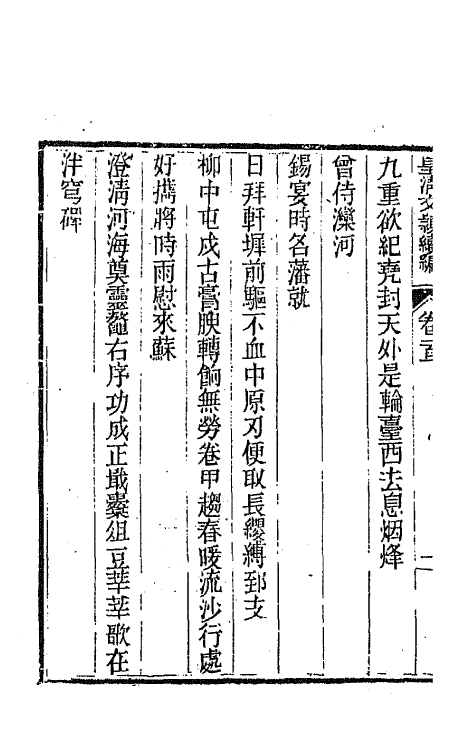 皇清文穎續編 卷百 二
九重欲紀堯封天外是輪臺西去息烟烽
曾侍灤河
錫宴時名藩就
日拜軒墀前驅不血中原刃便取長纓縛郅支
柳中屯戍古膏腴轉餉無勞卷甲趨春暖流沙行處
好攜將時雨慰來蘇
澄清河海奠靈鼇右序功成正戢櫜俎豆莘莘歌在
泮穹碑